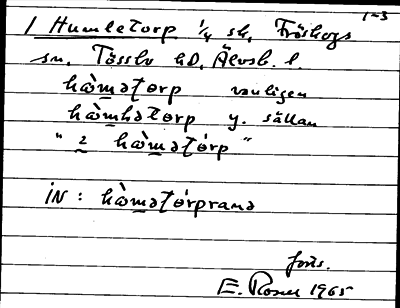 1-3
1 Humletorp 1/4 sk. Fröskogs
sn. Tössbo hd. Älvsb. l.
hàmətorp vanligen
hàmhətorp y. sällan
" 2 hàmətórp "
iN: hàmətórparna
forts.
E. Rosell 1965